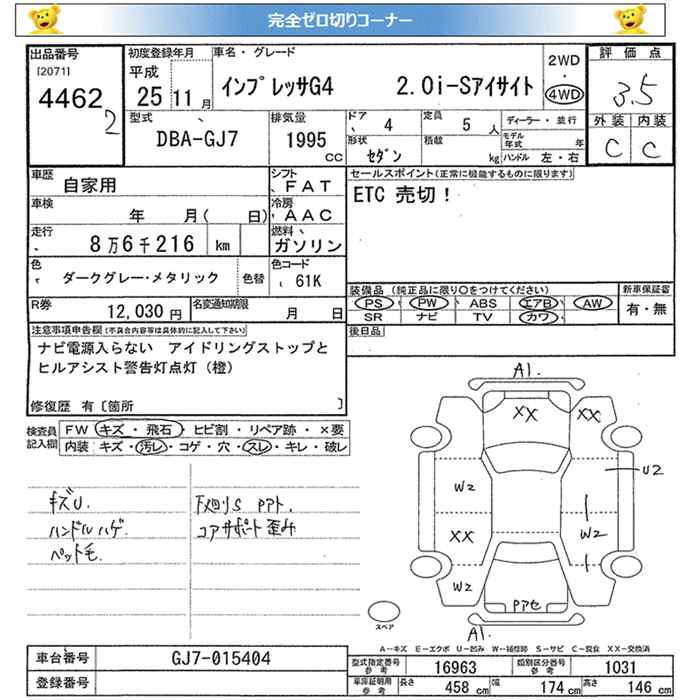 完全ゼロ切りコーナー
出品番号 初度登録年月 車名・グレード 2WD 評価点
[2071] 平成
4462 25 11月 インプレッサG4 2.0i-Sアイサイト 4WD 3.5
2 型式 排気量 ドア 4 定員 5 人 ディーラー・並行 外装 内装
DBA-GJ7 1995 cc 形状 セダン 積載 kg モデル年式 年 C C
ハンドル 左・右
車歴 自家用 シフト FAT セールスポイント(正常に機能するものに限ります)
車検 年 月( 日) 冷房 AAC ETC 売切!
走行 8万6千216 km 燃料 ガソリン
色 ダークグレー・メタリック 色替 色コード 61K
装備品 (純正品に限り○をつけてください) 新車保証書
R券 12,030円 名変通知期限 月 日 PS PW ABS エアB AW 有・無
SR ナビ TV カワ
注意事項申告欄(不具合内容等は具体的に記入して下さい) 後日品
ナビ電源入らない アイドリングストップと
ヒルアシスト警告灯点灯(橙)
修復歴 有〔箇所 〕
検査員記入欄 FW キズ・飛石・ヒビ割・リペア跡・×要
内装:キズ・汚レ・コゲ・穴・スレ・キレ・破レ
A1.
XX XX
U2
W2
W2
XX
W2
キズU. 下廻りS
ハンドルハゲ コアサポート歪み
ペット毛.
スペア
A1.
A-キズ E-エクボ U-凹み W-補修跡 S-サビ C-腐食 XX-交換済
車台番号 GJ7-015404 型式指定番号 参考 16963 類別区分番号 参考 1031
登録番号 車庫証明用 参考 長さ 458 cm 幅 174 cm 高さ 146 cm